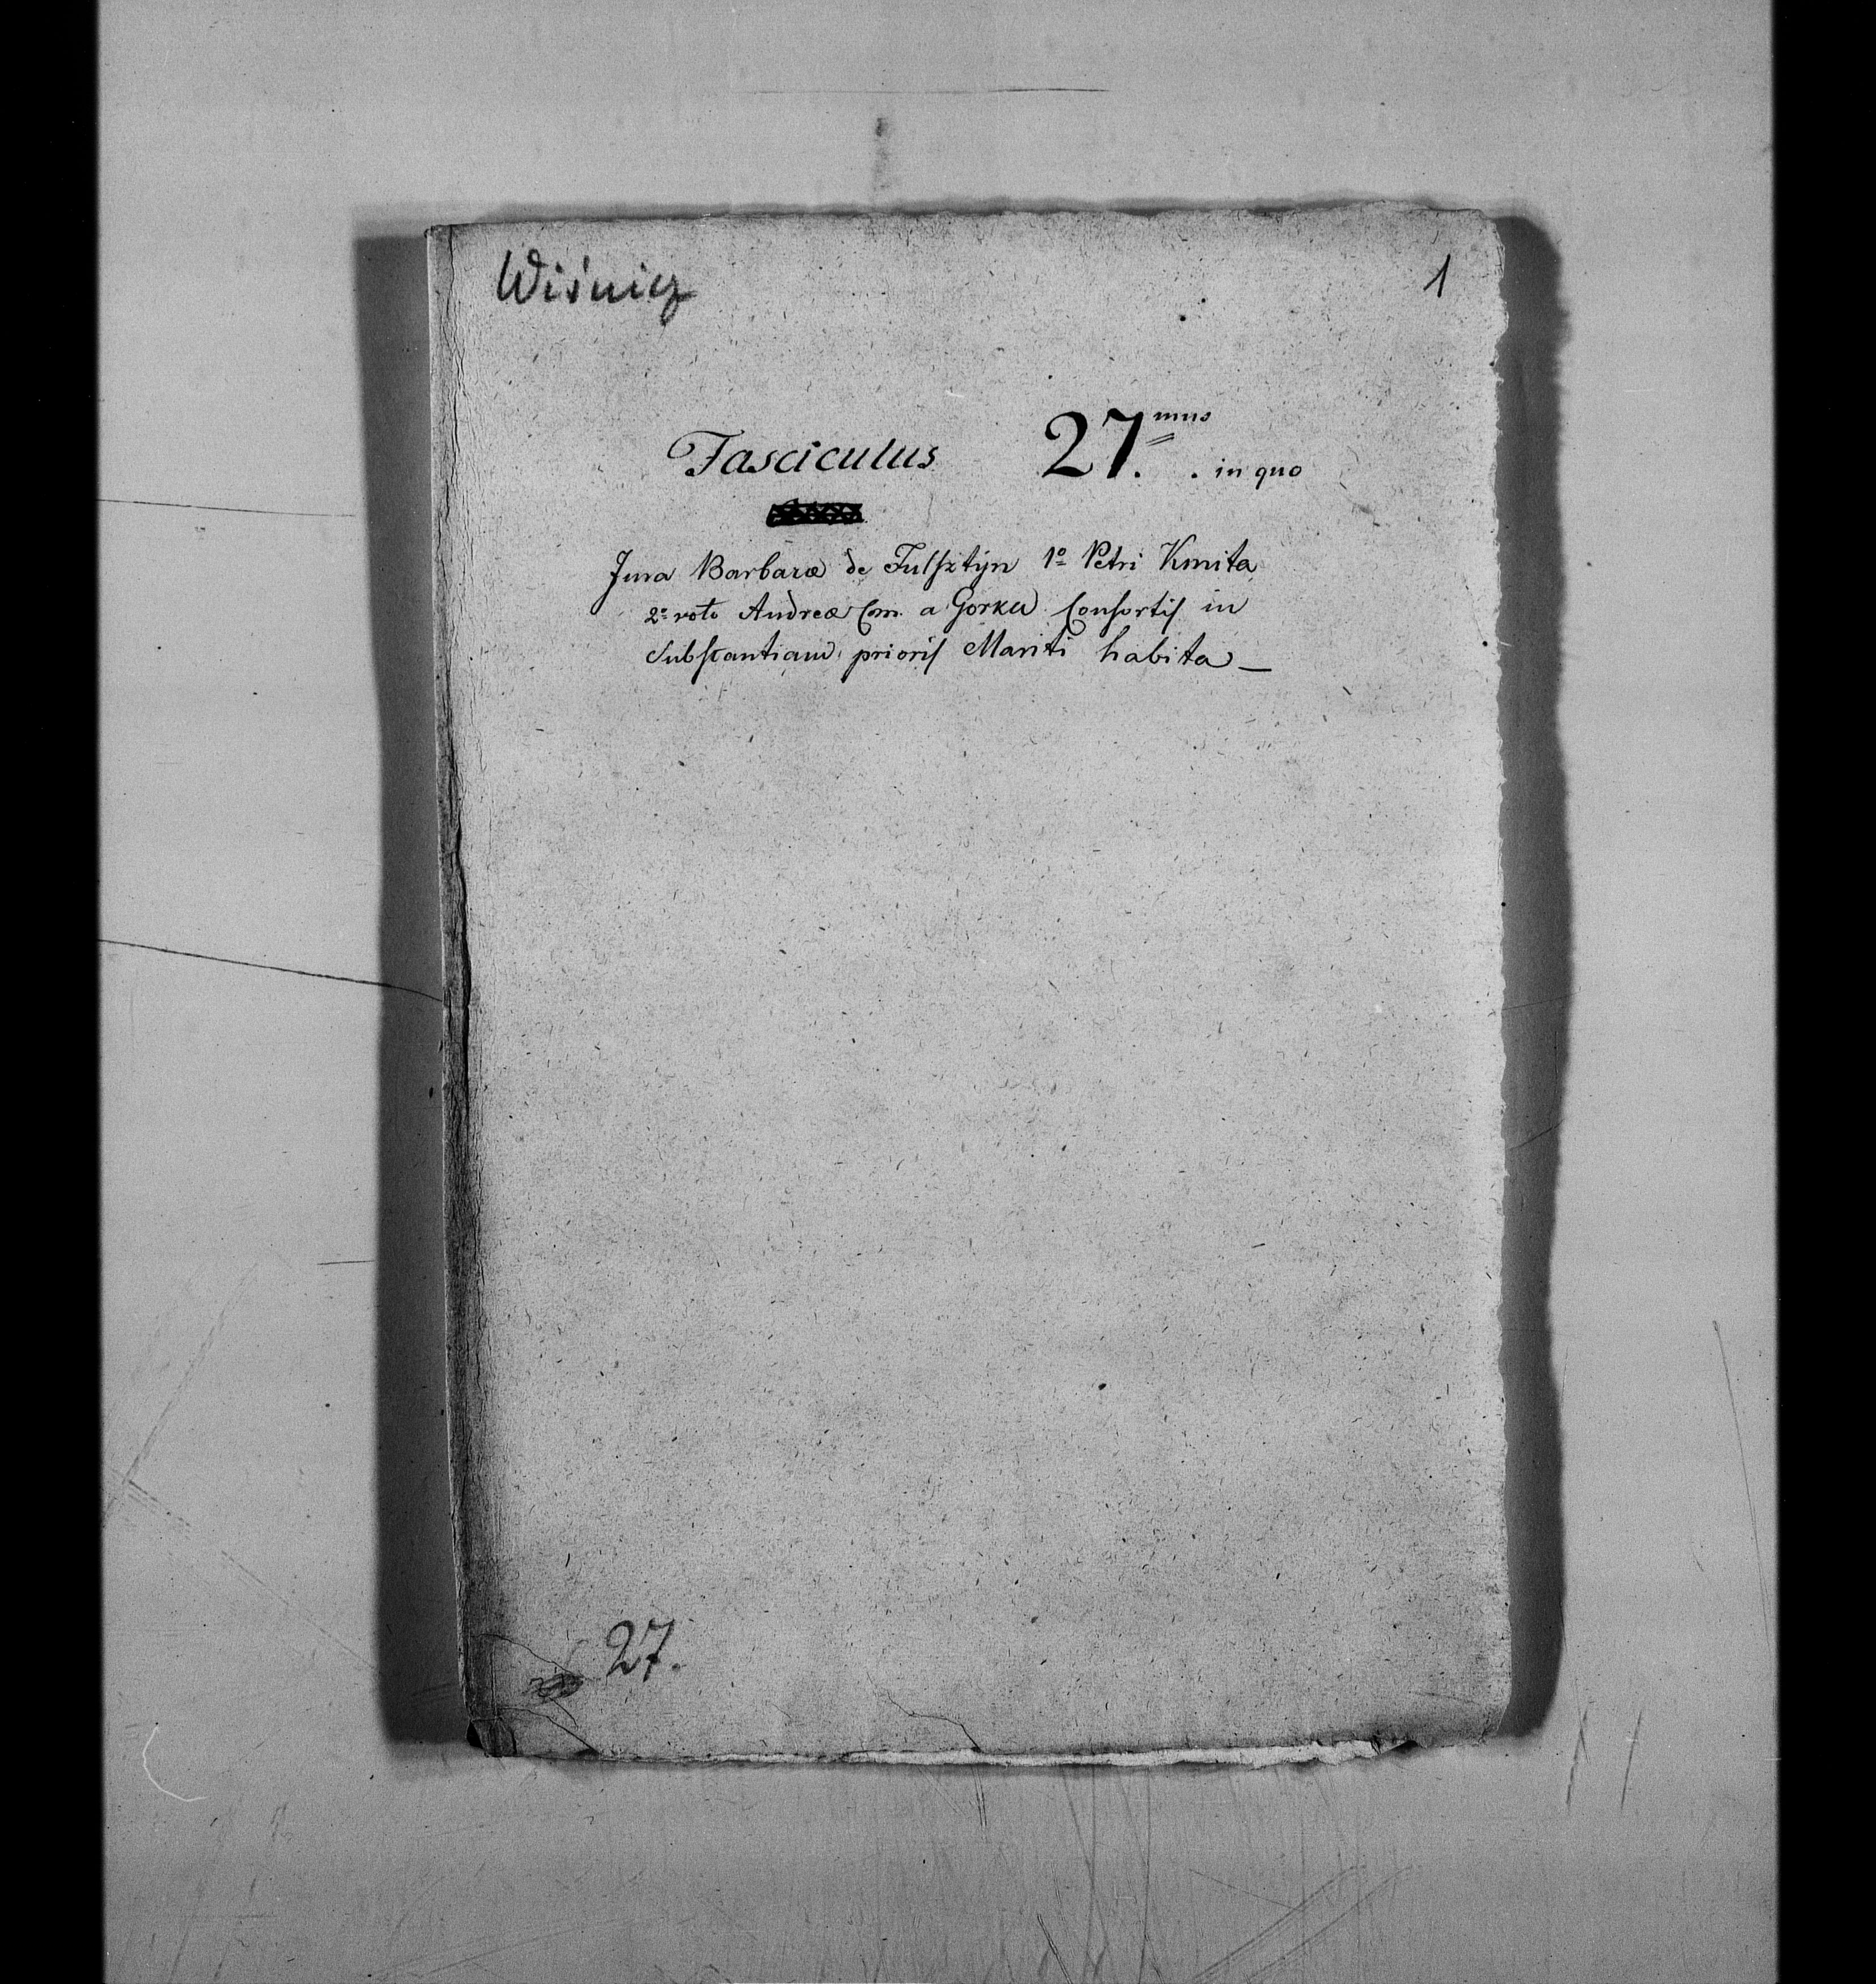 Wiśnicz
1
Fasciculus 27.mus . in quo
Jura Barbaræ de Fulsztÿn 1º Petri Kmita
2º voto Andreæ Com. a Gorka Consortis in
Substantiam prioris Mariti habita —
27.